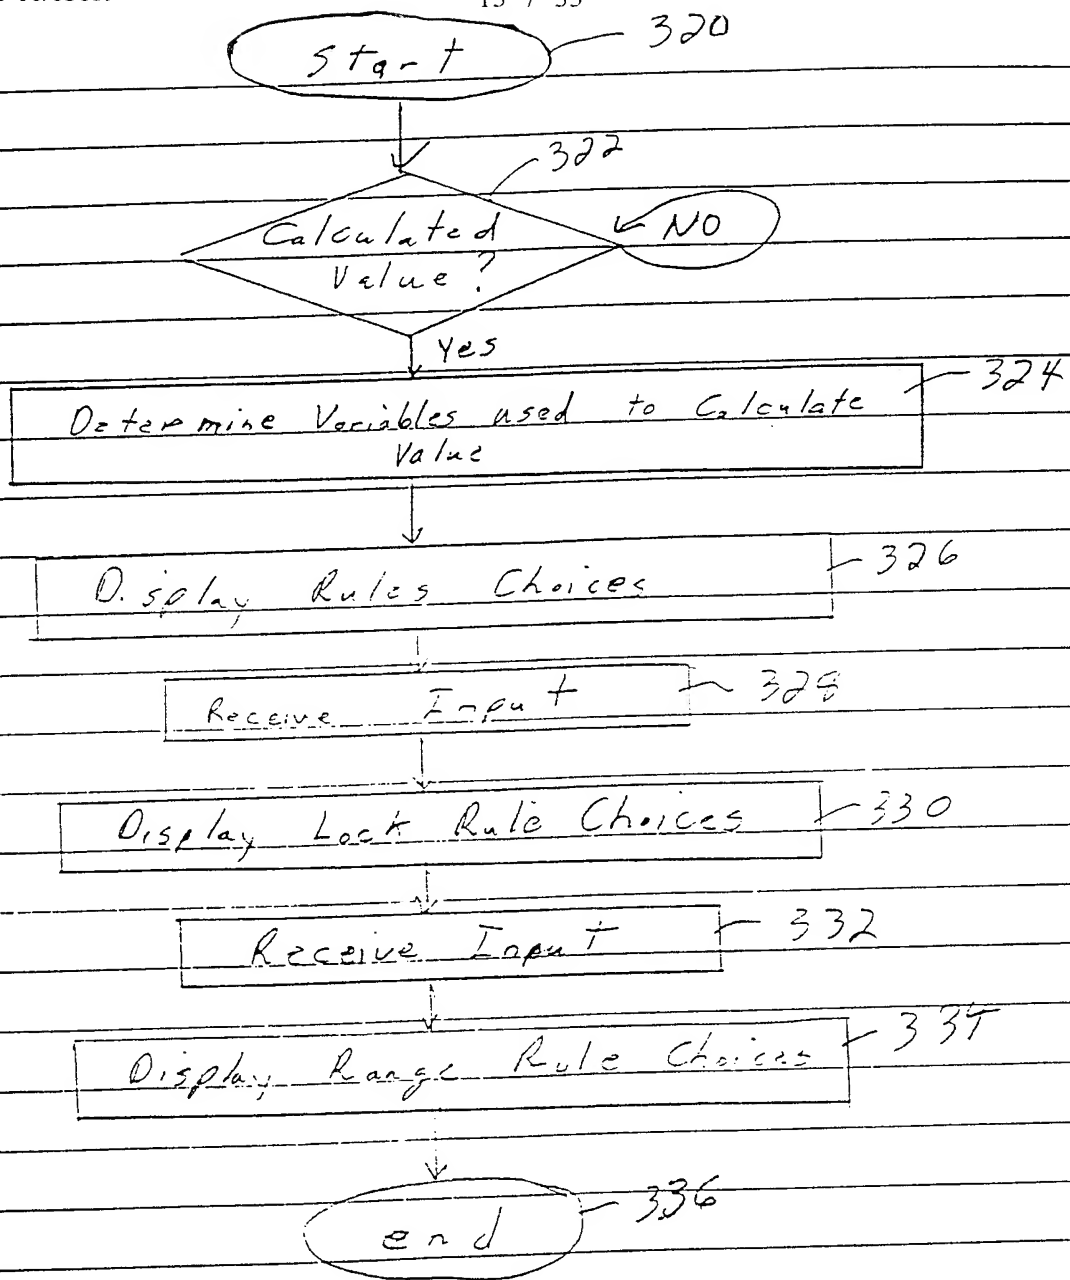 Start
320
322
Calculated
Value?
NO
Yes
324
Determine Variables used to Calculate
Value
Display Rules Choices
326
Receive Input
328
Display Lock Rule Choices
330
Receive Input
332
Display Range Rule Choices
334
end
336